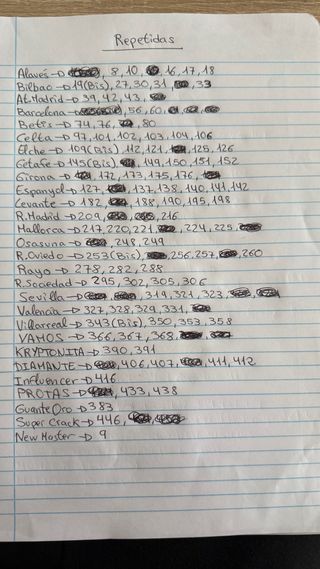 Repetidas
Alavés → 8, 10, 16, 17, 18
Bilbao → 19(Bis), 27, 30, 31, 33
At. Madrid → 39, 42, 43,
Barcelona → 56, 60
Betis → 74, 76, 80
Celta → 97, 101, 102, 103, 104, 106
Elche → 109(Bis), 112, 121, 125, 126
Getafe → 145(Bis), 149, 150, 151, 152
Girona → 172, 173, 175, 176,
Espanyol → 127, 137, 138, 140, 141, 142
Levante → 182, 188, 190, 195, 198
R. Madrid → 209, 216
Mallorca → 217, 220, 221, 224, 225,
Osasuna → 248, 249
R. Oviedo → 253(Bis), 256, 257, 260
Rayo → 278, 282, 288
R. Sociedad → 295, 302, 305, 306
Sevilla → 319, 321, 323,
Valencia → 327, 328, 329, 331,
Villarreal → 343(Bis), 350, 353, 358
VAMOS → 366, 367, 368
KRYPTONITA → 390, 391
DIAMANTE → 406, 407, 411, 412
Influencer → 416
PROTAS → 433, 438
Guante Oro → 383
Super Crack → 446,
New Master → 9